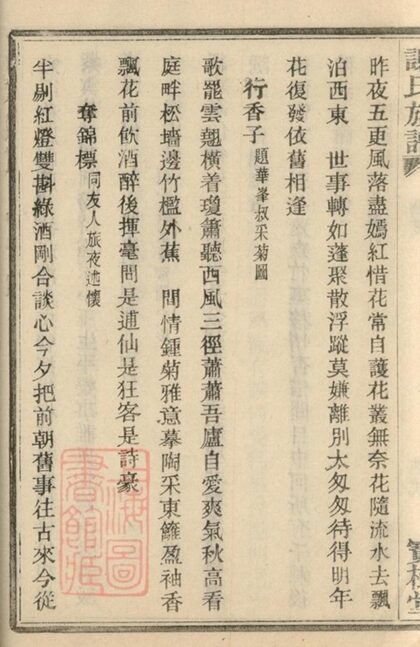 昨夜五更風落盡嫣紅惜花常自護花叢無奈花隨流水去飄
泊西東　世事轉如蓬聚散浮蹤莫嫌離別太匆匆待得明年
花復發依舊相逢
行香子 題華峯叔采菊圖
歌罷雲翹橫着瓊簫聽西風三徑蕭蕭吾廬自愛爽氣秋高看
庭畔松墻邊竹檻外蕉　閒情鍾菊雅意摹陶采東籬盈袖香
飄花前飲酒醉後揮毫問是逋仙是狂客是詩豪
奪錦標 同友人旅夜述懷
半剔紅燈雙斟綠酒剛合談心今夕把前朝舊事往古來今從
上海圖書館藏